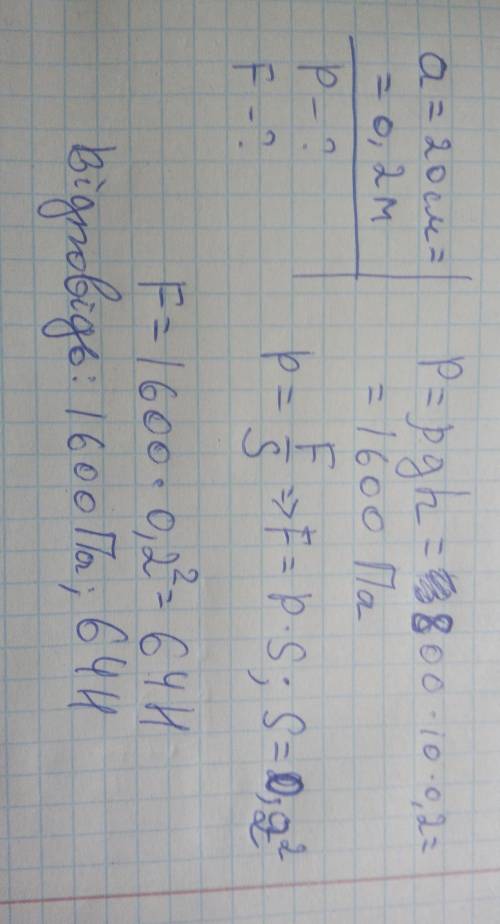 a = 20 см =
= 0,2 м
p - ?
F - ?
p = ρgh = 800 · 10 · 0,2 =
= 1600 Па
p = F/S => F = p · S; S = 0,2²
F = 1600 · 0,2² = 64 Н
Відповідь: 1600 Па; 64 Н